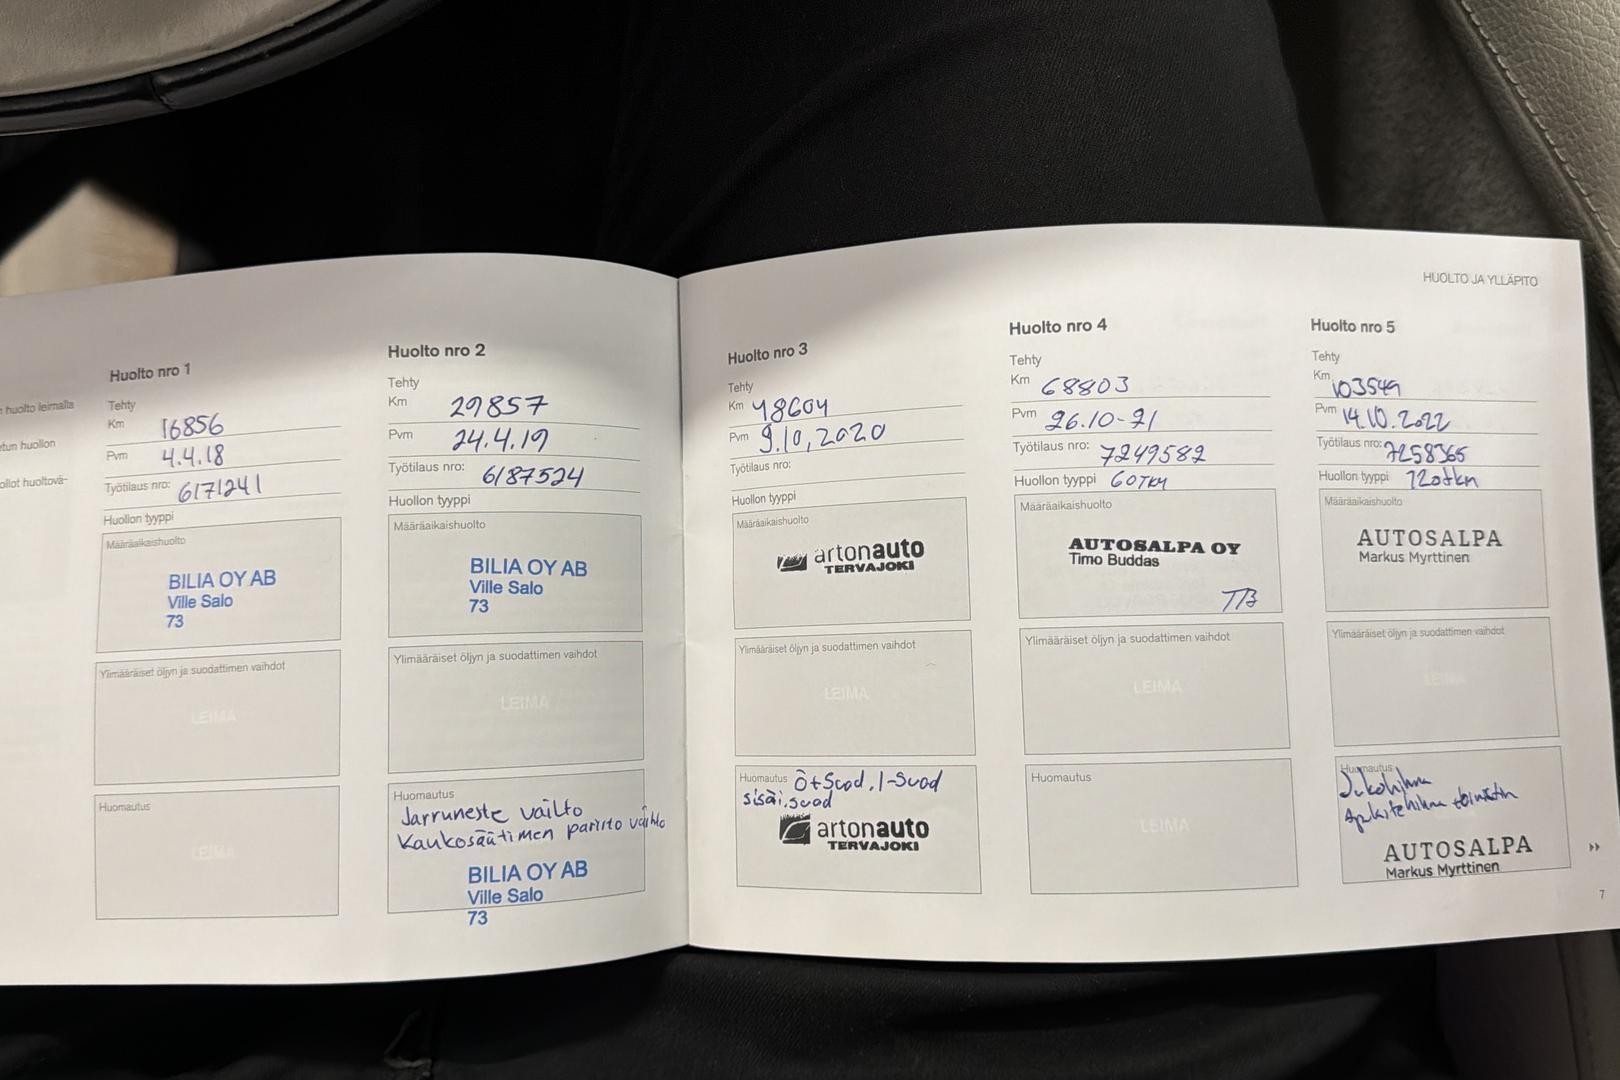 HUOLTO JA YLLÄPITO
n huolto leimalla
tun huollon
ollot huoltovä-
Huolto nro 1
Tehty
Km 16856
Pvm 4.4.18
Työtilaus nro: 6171241
Huollon tyyppi
Määräaikaishuolto
BILIA OY AB
Ville Salo
73
Ylimääräiset öljyn ja suodattimen vaihdot
LEIMA
Huomautus
LEIMA
Huolto nro 2
Tehty
Km 29857
Pvm 24.4.19
Työtilaus nro: 6187524
Huollon tyyppi
Määräaikaishuolto
BILIA OY AB
Ville Salo
73
Ylimääräiset öljyn ja suodattimen vaihdot
LEIMA
Huomautus
Jarruneste vaihto
Kaukosäätimen paristo vaihto
BILIA OY AB
Ville Salo
73
Huolto nro 3
Tehty
Km 48604
Pvm 9.10,2020
Työtilaus nro:
Huollon tyyppi
Määräaikaishuolto
artonauto
TERVAJOKI
Ylimääräiset öljyn ja suodattimen vaihdot
LEIMA
Huomautus Ö+Suod, I-Suod
sisäi.suod
artonauto
TERVAJOKI
Huolto nro 4
Tehty
Km 68803
Pvm 26.10-21
Työtilaus nro: 7249582
Huollon tyyppi 60TKM
Määräaikaishuolto
AUTOSALPA OY
Timo Buddas
TB
Ylimääräiset öljyn ja suodattimen vaihdot
LEIMA
Huomautus
LEIMA
Huolto nro 5
Tehty
Km 103549
Pvm 14.10.2022
Työtilaus nro: 7258365
Huollon tyyppi 120tkm
Määräaikaishuolto
AUTOSALPA
Markus Myrttinen
Ylimääräiset öljyn ja suodattimen vaihdot
LEIMA
Huomautus
Jakohihna
Apulaitehihna
AUTOSALPA
Markus Myrttinen
7